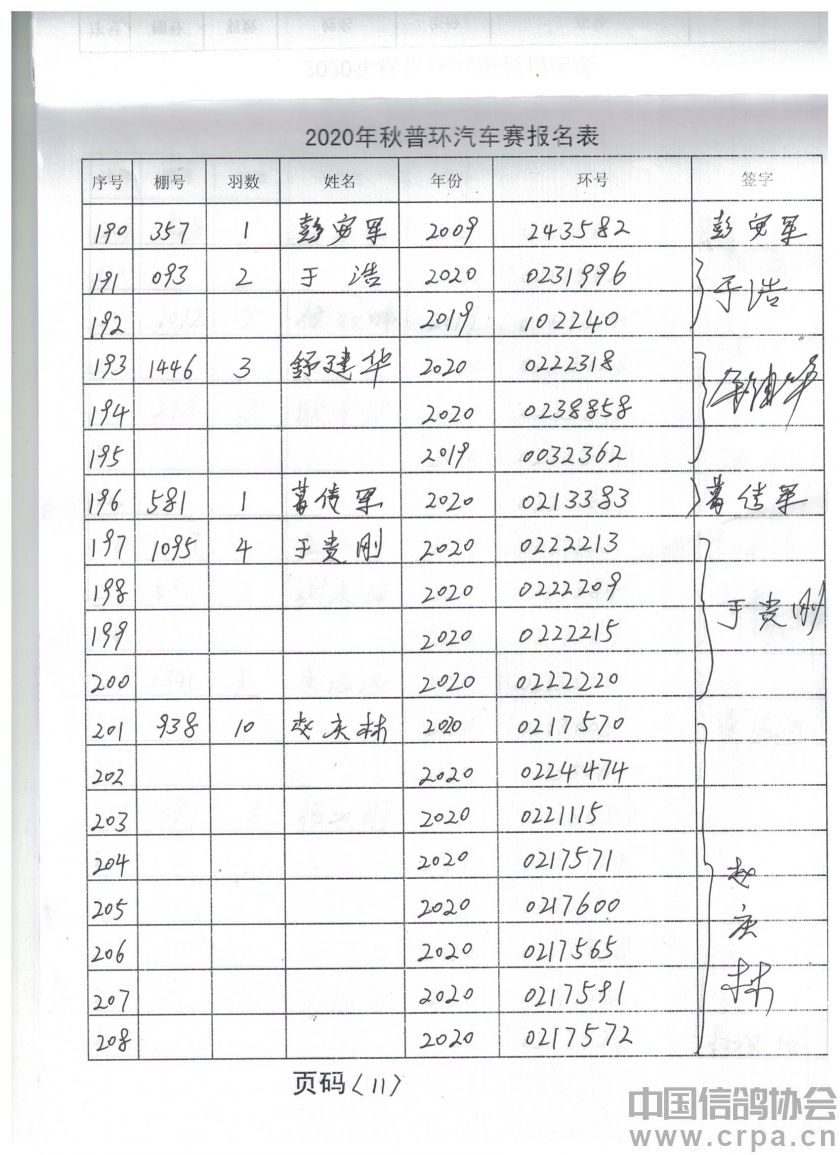 2020年秋普环汽车赛报名表
序号 棚号 羽数 姓名 年份 环号 签字
190 357 1 彭宙军 2009 243582 彭宙军
191 093 2 于浩 2020 0231996 于浩
192 2019 102240
193 1446 3 舒建华 2020 0222318 舒建华
194 2020 0238858
195 2019 0032362
196 581 1 葛传军 2020 0213383 葛传军
197 1095 4 于贵刚 2020 0222213
198 2020 0222209 于贵刚
199 2020 0222215
200 2020 0222220
201 938 10 赵庆林 2020 0217570
202 2020 0224474
203 2020 0221115
204 2020 0217571 赵庆林
205 2020 0217600
206 2020 0217565
207 2020 0217591
208 2020 0217572
页码(11)
中国信鸽协会
www.crpa.cn